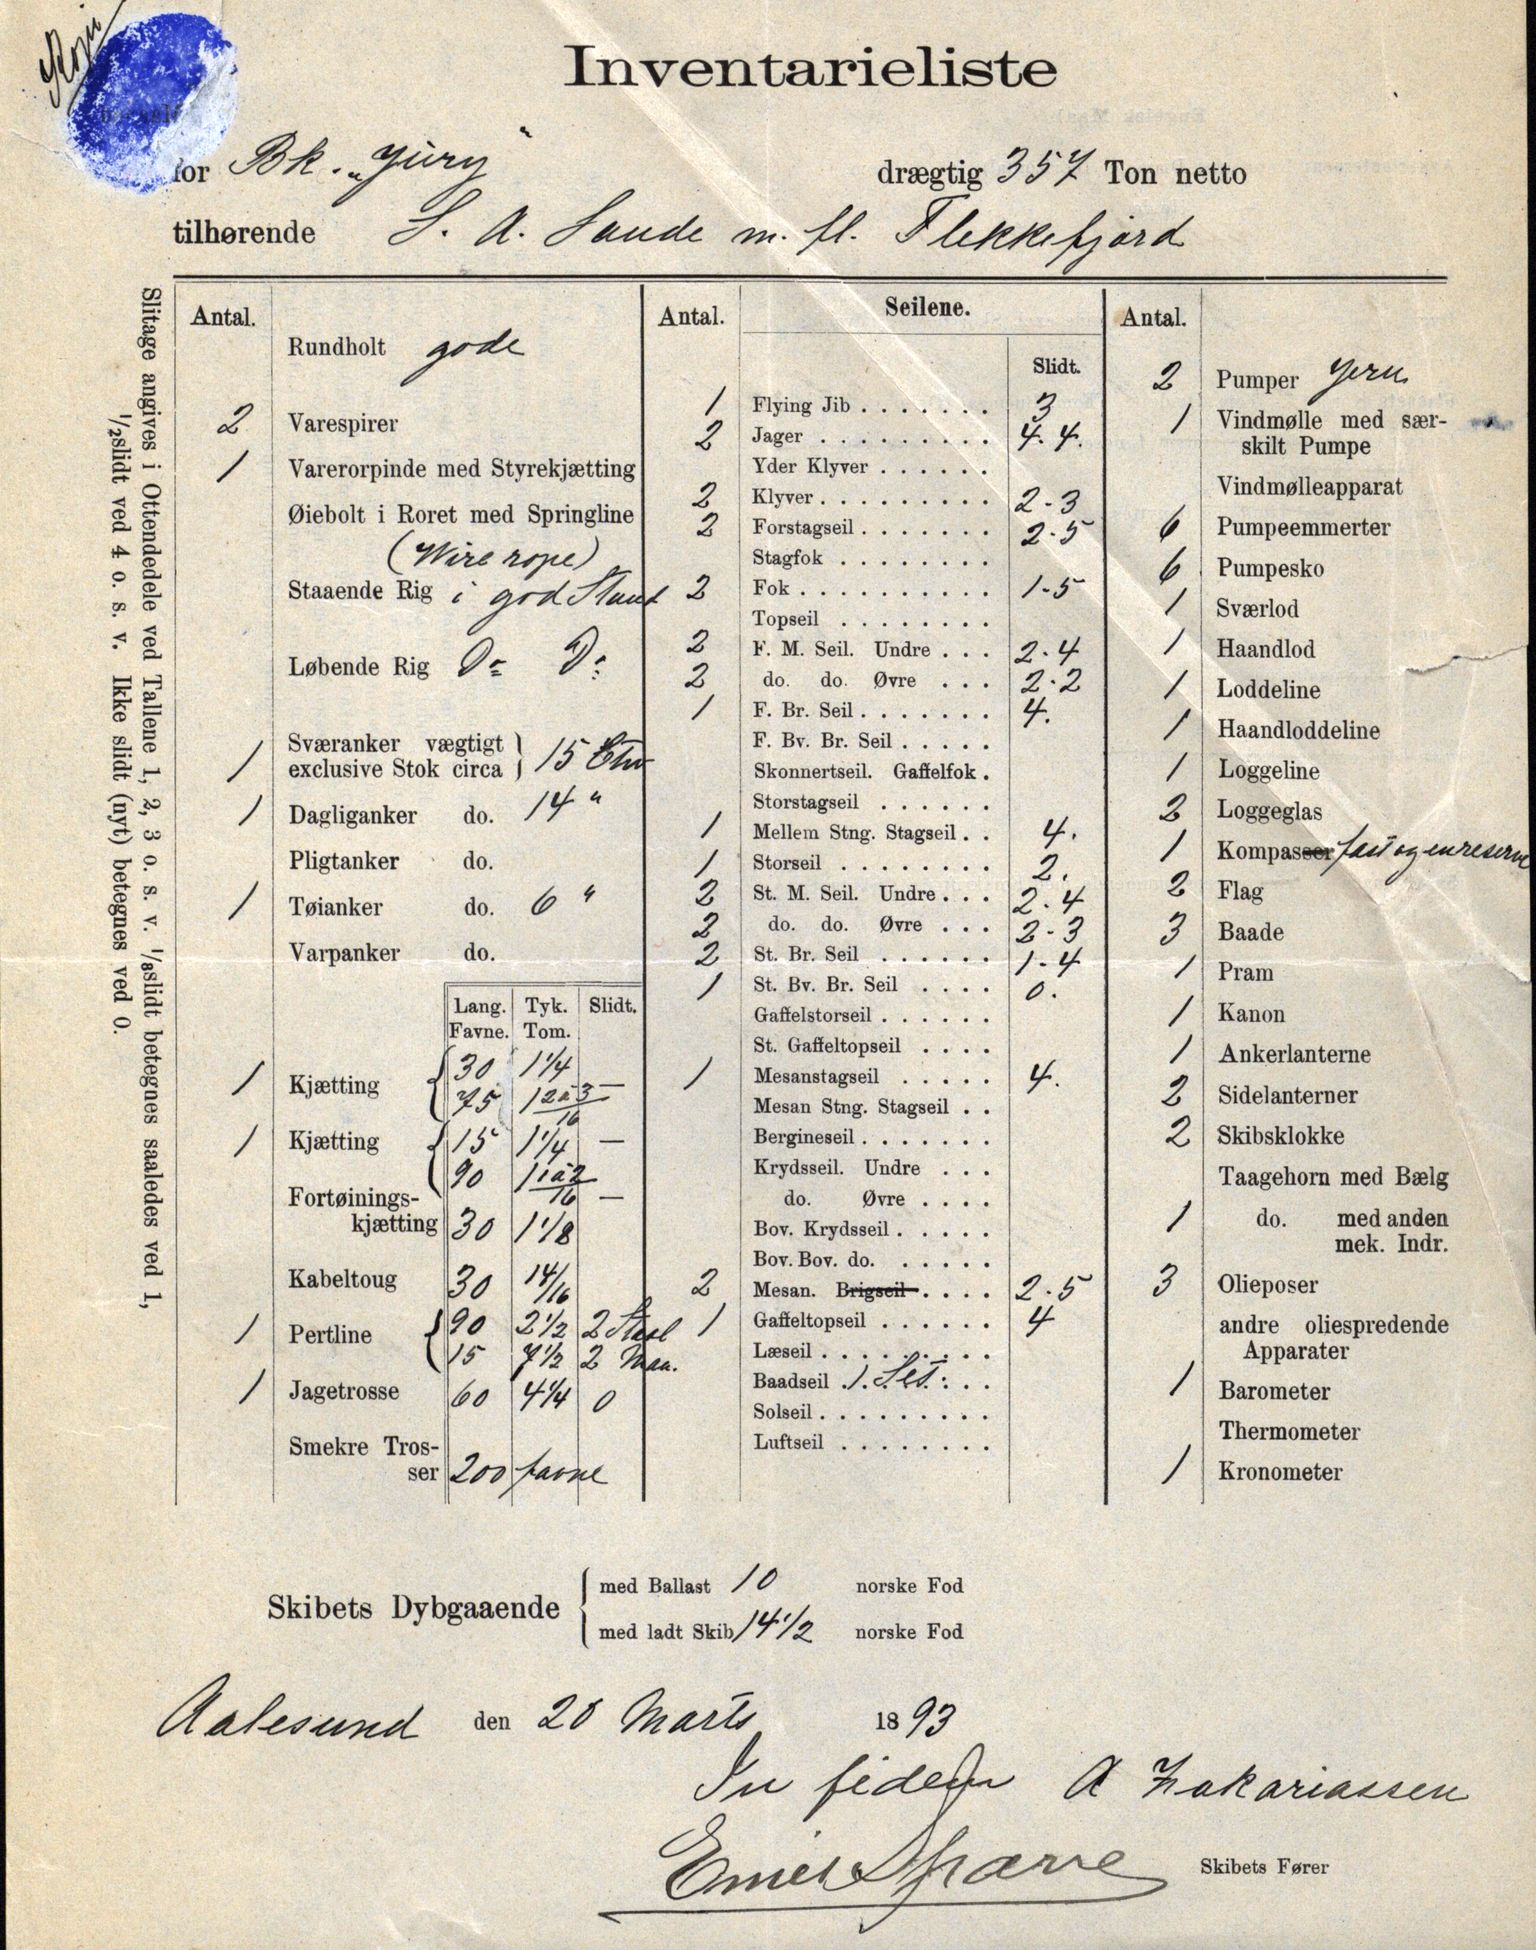 Kopi
Inventarieliste
for Bk. „Jury" drægtig 357 Ton netto
tilhørende S. A. Sande m. fl. Flekkefjord
Slitage angives i Ottendedele ved Tallene 1, 2, 3 o. s. v. 1/8slidt betegnes saaledes ved 1,
1/2slidt ved 4 o. s. v. Ikke slidt (nyt) betegnes ved 0.
Antal.
Rundholt gode
2 Varespirer
1 Varerorpinde med Styrekjætting
Øiebolt i Roret med Springline
(Wire rope)
Staaende Rig i god Stand
Løbende Rig Do Do
1 Sværanker vægtigt
exclusive Stok circa } 15 Ctw
1 Dagliganker do. 14 "
Pligtanker do.
1 Tøianker do. 6 "
Varpanker do.
Lang. Tyk. Slidt.
Favne. Tom.
1 Kjætting { 30 1 1/4
75 1 2 à 3/16 —
1 Kjætting { 15 1 1/4 —
90 1 1 à 2/16 —
Fortøinings-
kjætting 30 1 1/8
Kabeltoug 30 14/16
1 Pertline { 90 2 1/2 2 Staal
15 7 1/2 2 Man.
1 Jagetrosse 60 4 1/4 0
Smekre Tros-
ser 200 favne
Antal. Seilene.
Slidt.
1 Flying Jib . . . . . . . 3
2 Jager . . . . . . . . . 4. 4.
Yder Klyver . . . . . .
2 Klyver . . . . . . . . . 2-3
2 Forstagseil . . . . . . . 2-5
Stagfok . . . . . . . .
2 Fok . . . . . . . . . . 1-5
Topseil . . . . . . . .
2 F. M. Seil. Undre . . . 2-4
2 do. do. Øvre . . . 2-2
1 F. Br. Seil . . . . . . . 4.
F. Bv. Br. Seil . . . . .
Skonnertseil. Gaffelfok .
Storstagseil . . . . . .
1 Mellem Stng. Stagseil . . 4.
1 Storseil . . . . . . . . 2.
2 St. M. Seil. Undre . . . 2-4
2 do. do. Øvre . . . 2-3
2 St. Br. Seil . . . . . . 1-4
1 St. Bv. Br. Seil . . . . 0.
Gaffelstorseil . . . . . .
St. Gaffeltopseil . . . .
1 Mesanstagseil . . . . . 4.
Mesan Stng. Stagseil . .
Bergineseil . . . . . . .
Krydsseil. Undre . . .
do. Øvre . . . .
Bov. Krydsseil . . . . .
Bov. Bov. do. . . . . .
2 Mesan. Brigseil . . . . 2-5
1 Gaffeltopseil . . . . . . 4
Læseil . . . . . . . . .
Baadseil . 1 Set . . .
Solseil . . . . . . . . .
Luftseil . . . . . . . .
Antal.
2 Pumper Jern
1 Vindmølle med sær-
skilt Pumpe
Vindmølleapparat
6 Pumpeemmerter
6 Pumpesko
1 Sværlod
1 Haandlod
1 Loddeline
1 Haandloddeline
1 Loggeline
2 Loggeglas
1 Kompasser fast og en reserve
2 Flag
3 Baade
1 Pram
1 Kanon
1 Ankerlanterne
2 Sidelanterner
2 Skibsklokke
Taagehorn med Bælg
1 do. med anden
mek. Indr.
3 Olieposer
andre oliespredende
Apparater
1 Barometer
Thermometer
1 Kronometer
Skibets Dybgaaende { med Ballast 10 norske Fod
med ladt Skib 14 1/2 norske Fod
Aalesund den 20 Marts 1893
In fidem A Zakariassen
Emil Sparre Skibets Fører